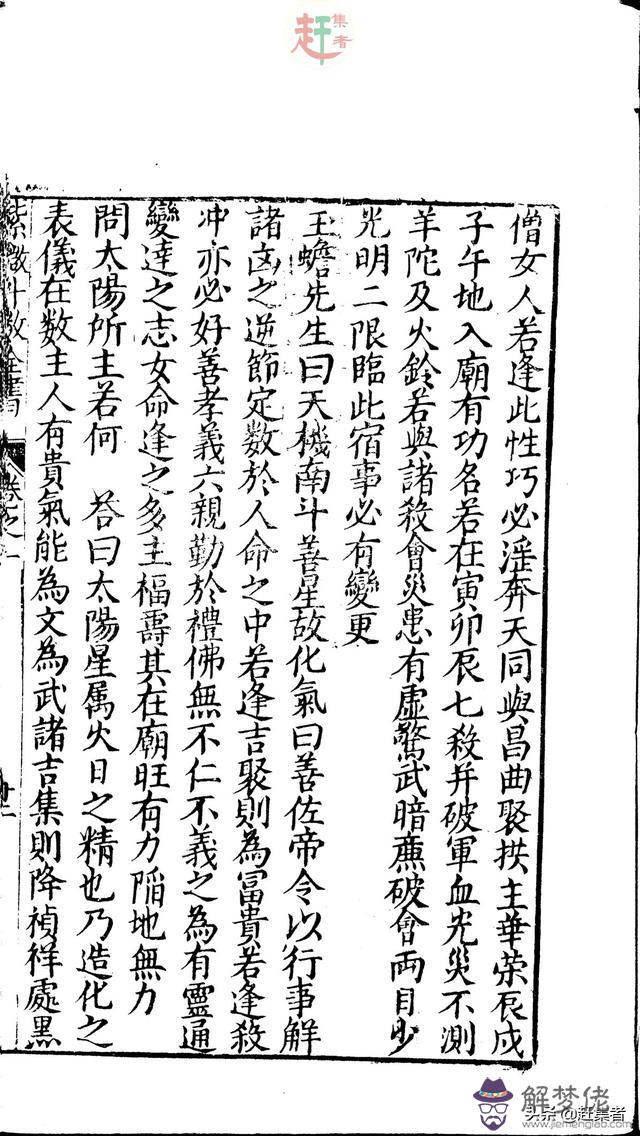 赶集者
僧女人若逢此性巧必淫奔天同與昌曲聚拱主華荣辰戍
子午地入廟有功名若在寅卯辰七殺并破軍血光災不測
羊陀及火鈴若與諸殺會災患有虛驚武暗廉破會両目少
光明二限臨此宿事必有變更
王蟾先生曰天機南斗善星故化氣曰善佐帝令以行事解
諸凶之逆節定数於人命之中若逢吉聚則為冨貴若逢殺
冲亦必好善孝義六親勤於禮佛無不仁不義之為有靈通
變達之志女命逢之多主福壽其在廟旺有力陷地無力
問太陽所主若何 荅曰太陽星属火日之精也乃造化之
表儀在数主人有貴氣能為文為武諸吉集則降禎祥處黒
卷之一
解梦佬
www.jiemenglao.com
头条@赶集者